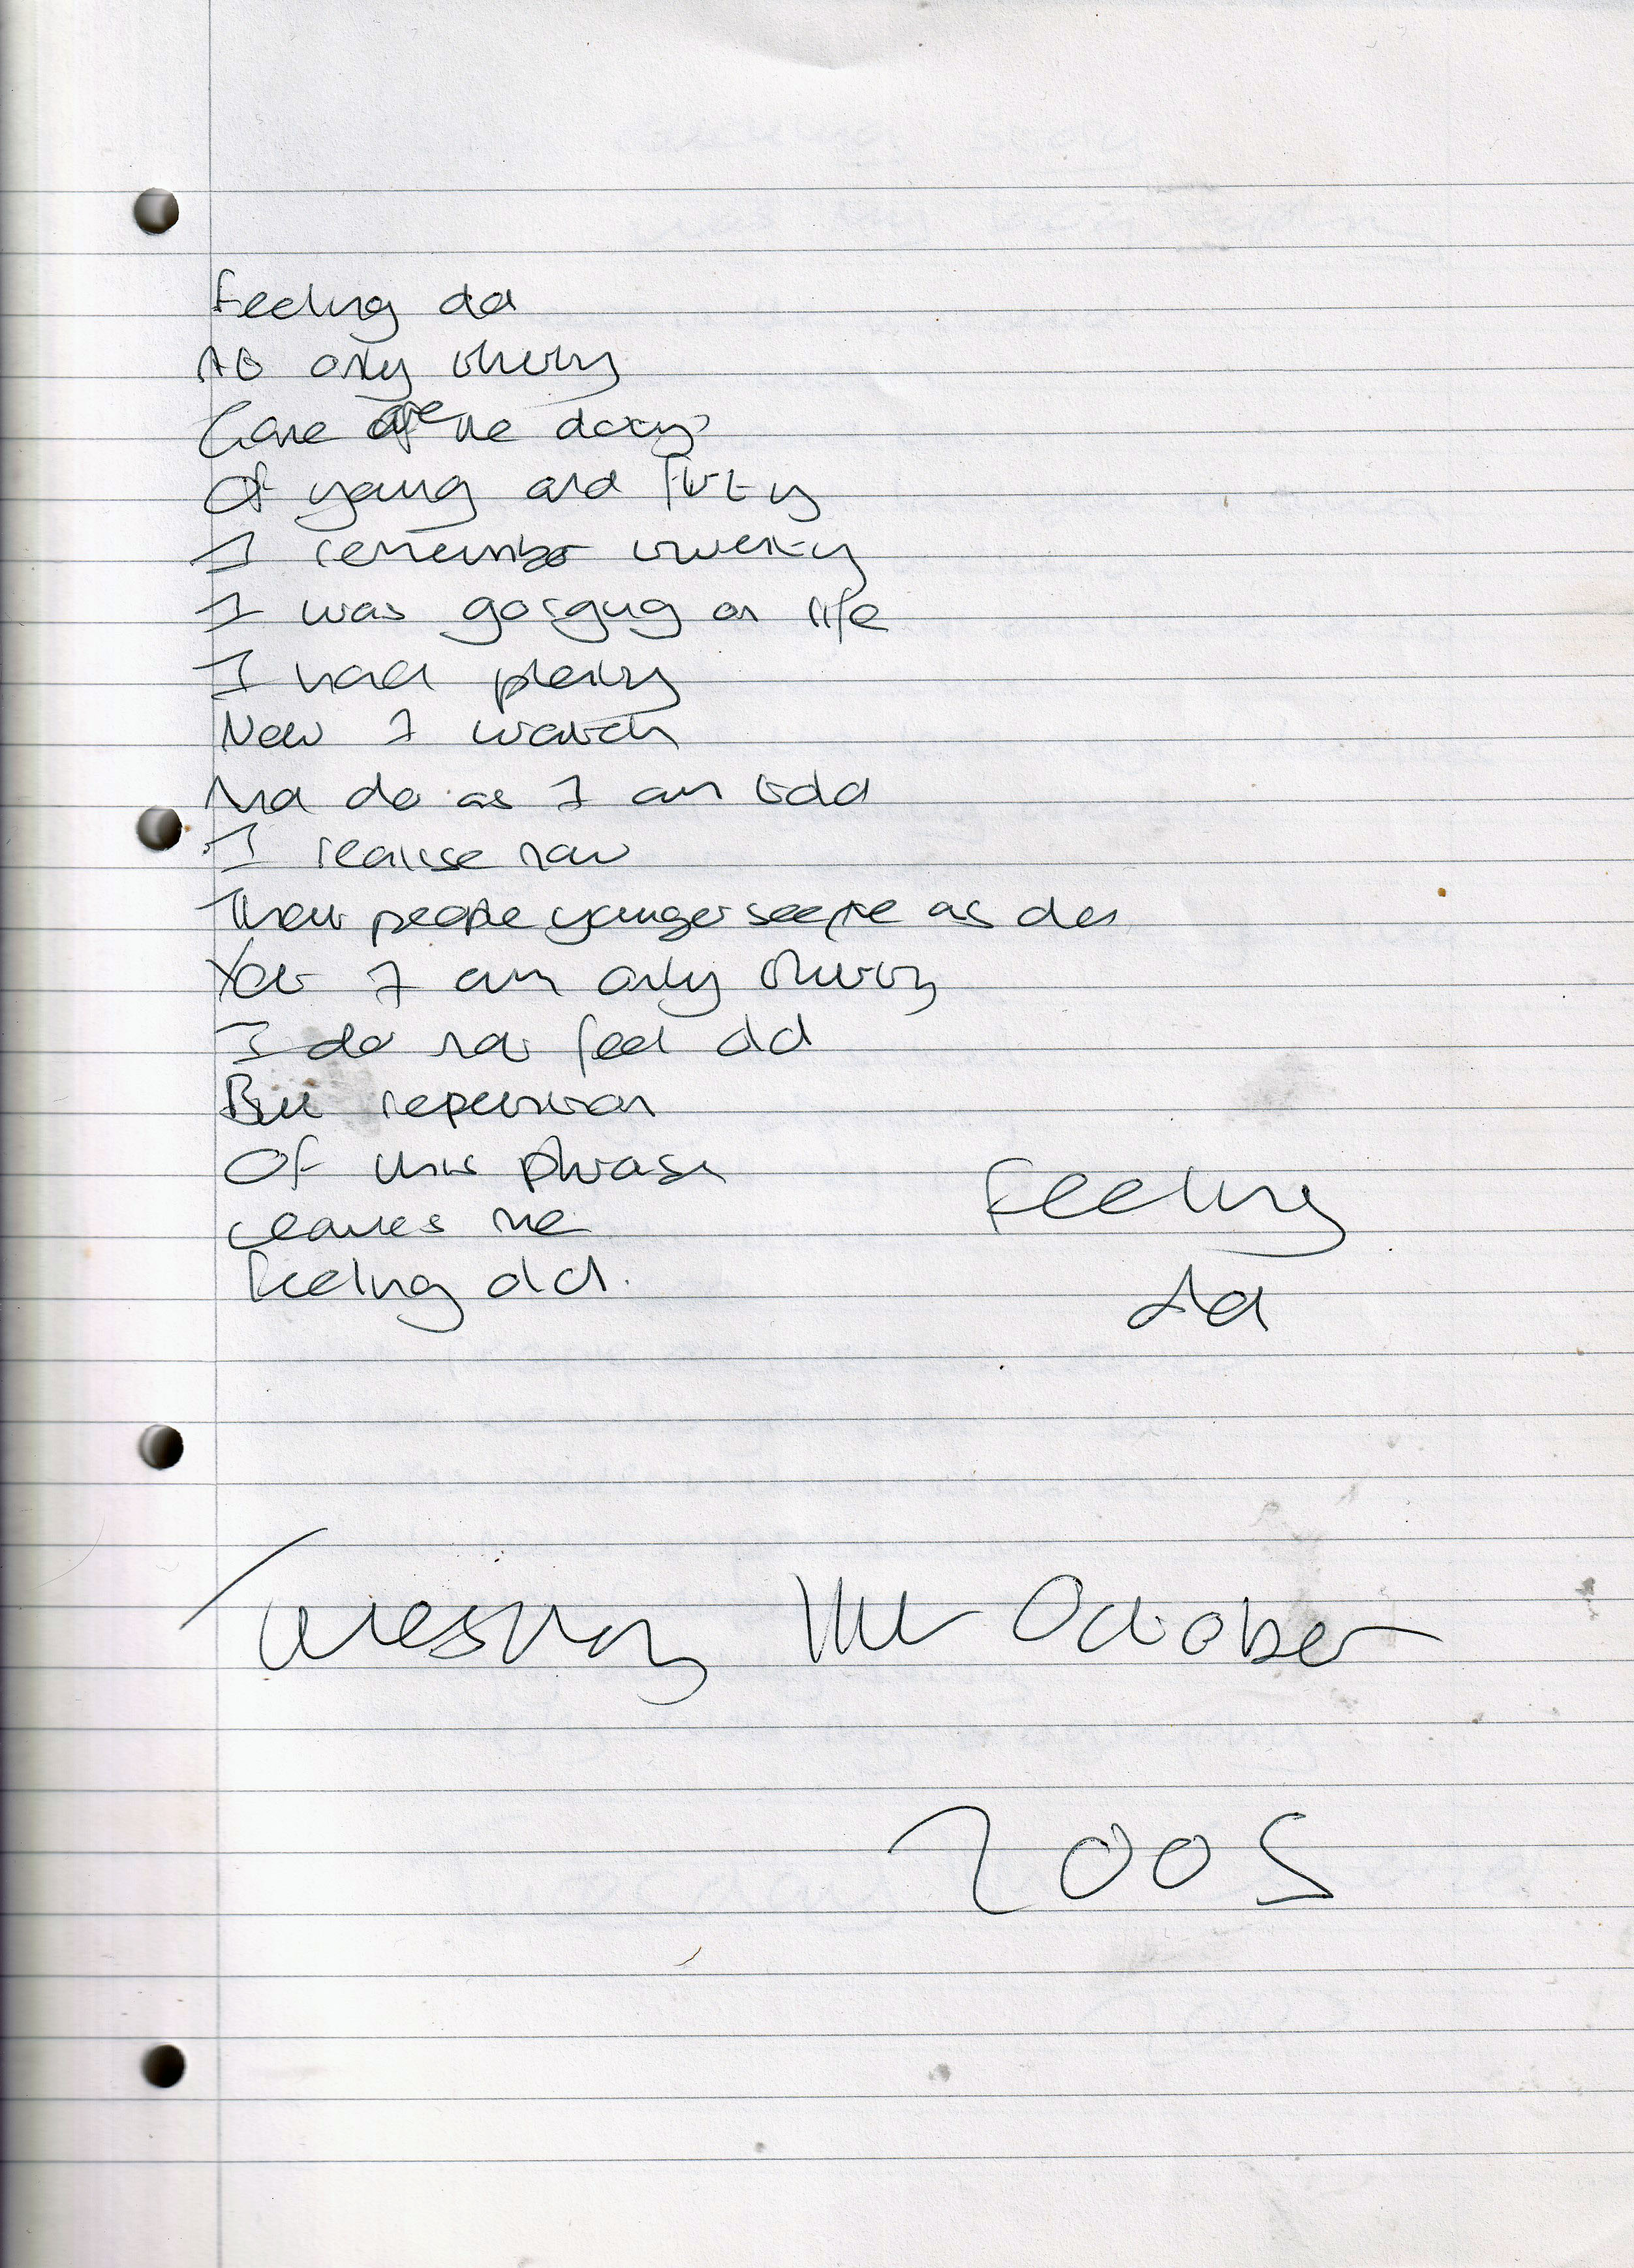 Feeling old
At only thirty
Gone are the days
Of young and flirty
I remember twenty
I was gorging on life
I had plenty
Now I watch
And do as I am told
I realise now
That people younger see me as old
Yet I am only thirty
I do not feel old
But repetition
Of this phrase
Leaves me
Feeling old.
Feeling
Old
Tuesday 11th October
2005